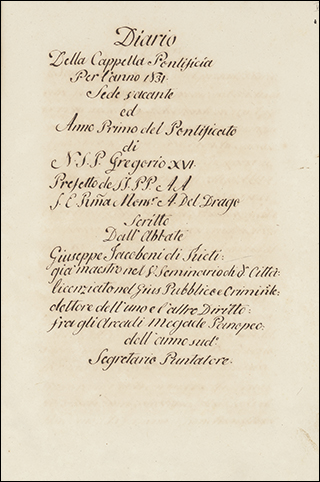 Diario
Della Cappella Pontificia
Per l'anno 1831
Sede vacante
ed
Anno Primo del Pontificato
di
N.S.P. Gregorio XVI
Prefetto de SS. PP. AA
S. E. Rma Monsr. A Del Drago
Scritto
Dall'Abbate
Giuseppe Jacoboni di Rieti
già maestro nel Seminario di d. Città
licenziato nel Gius Pubblico e Crimin.le
dottore dell'uno e l'altro Diritto
fra gli Arcadi Megade Panopeo
dell'anno sud.
Segretario Puntatore.